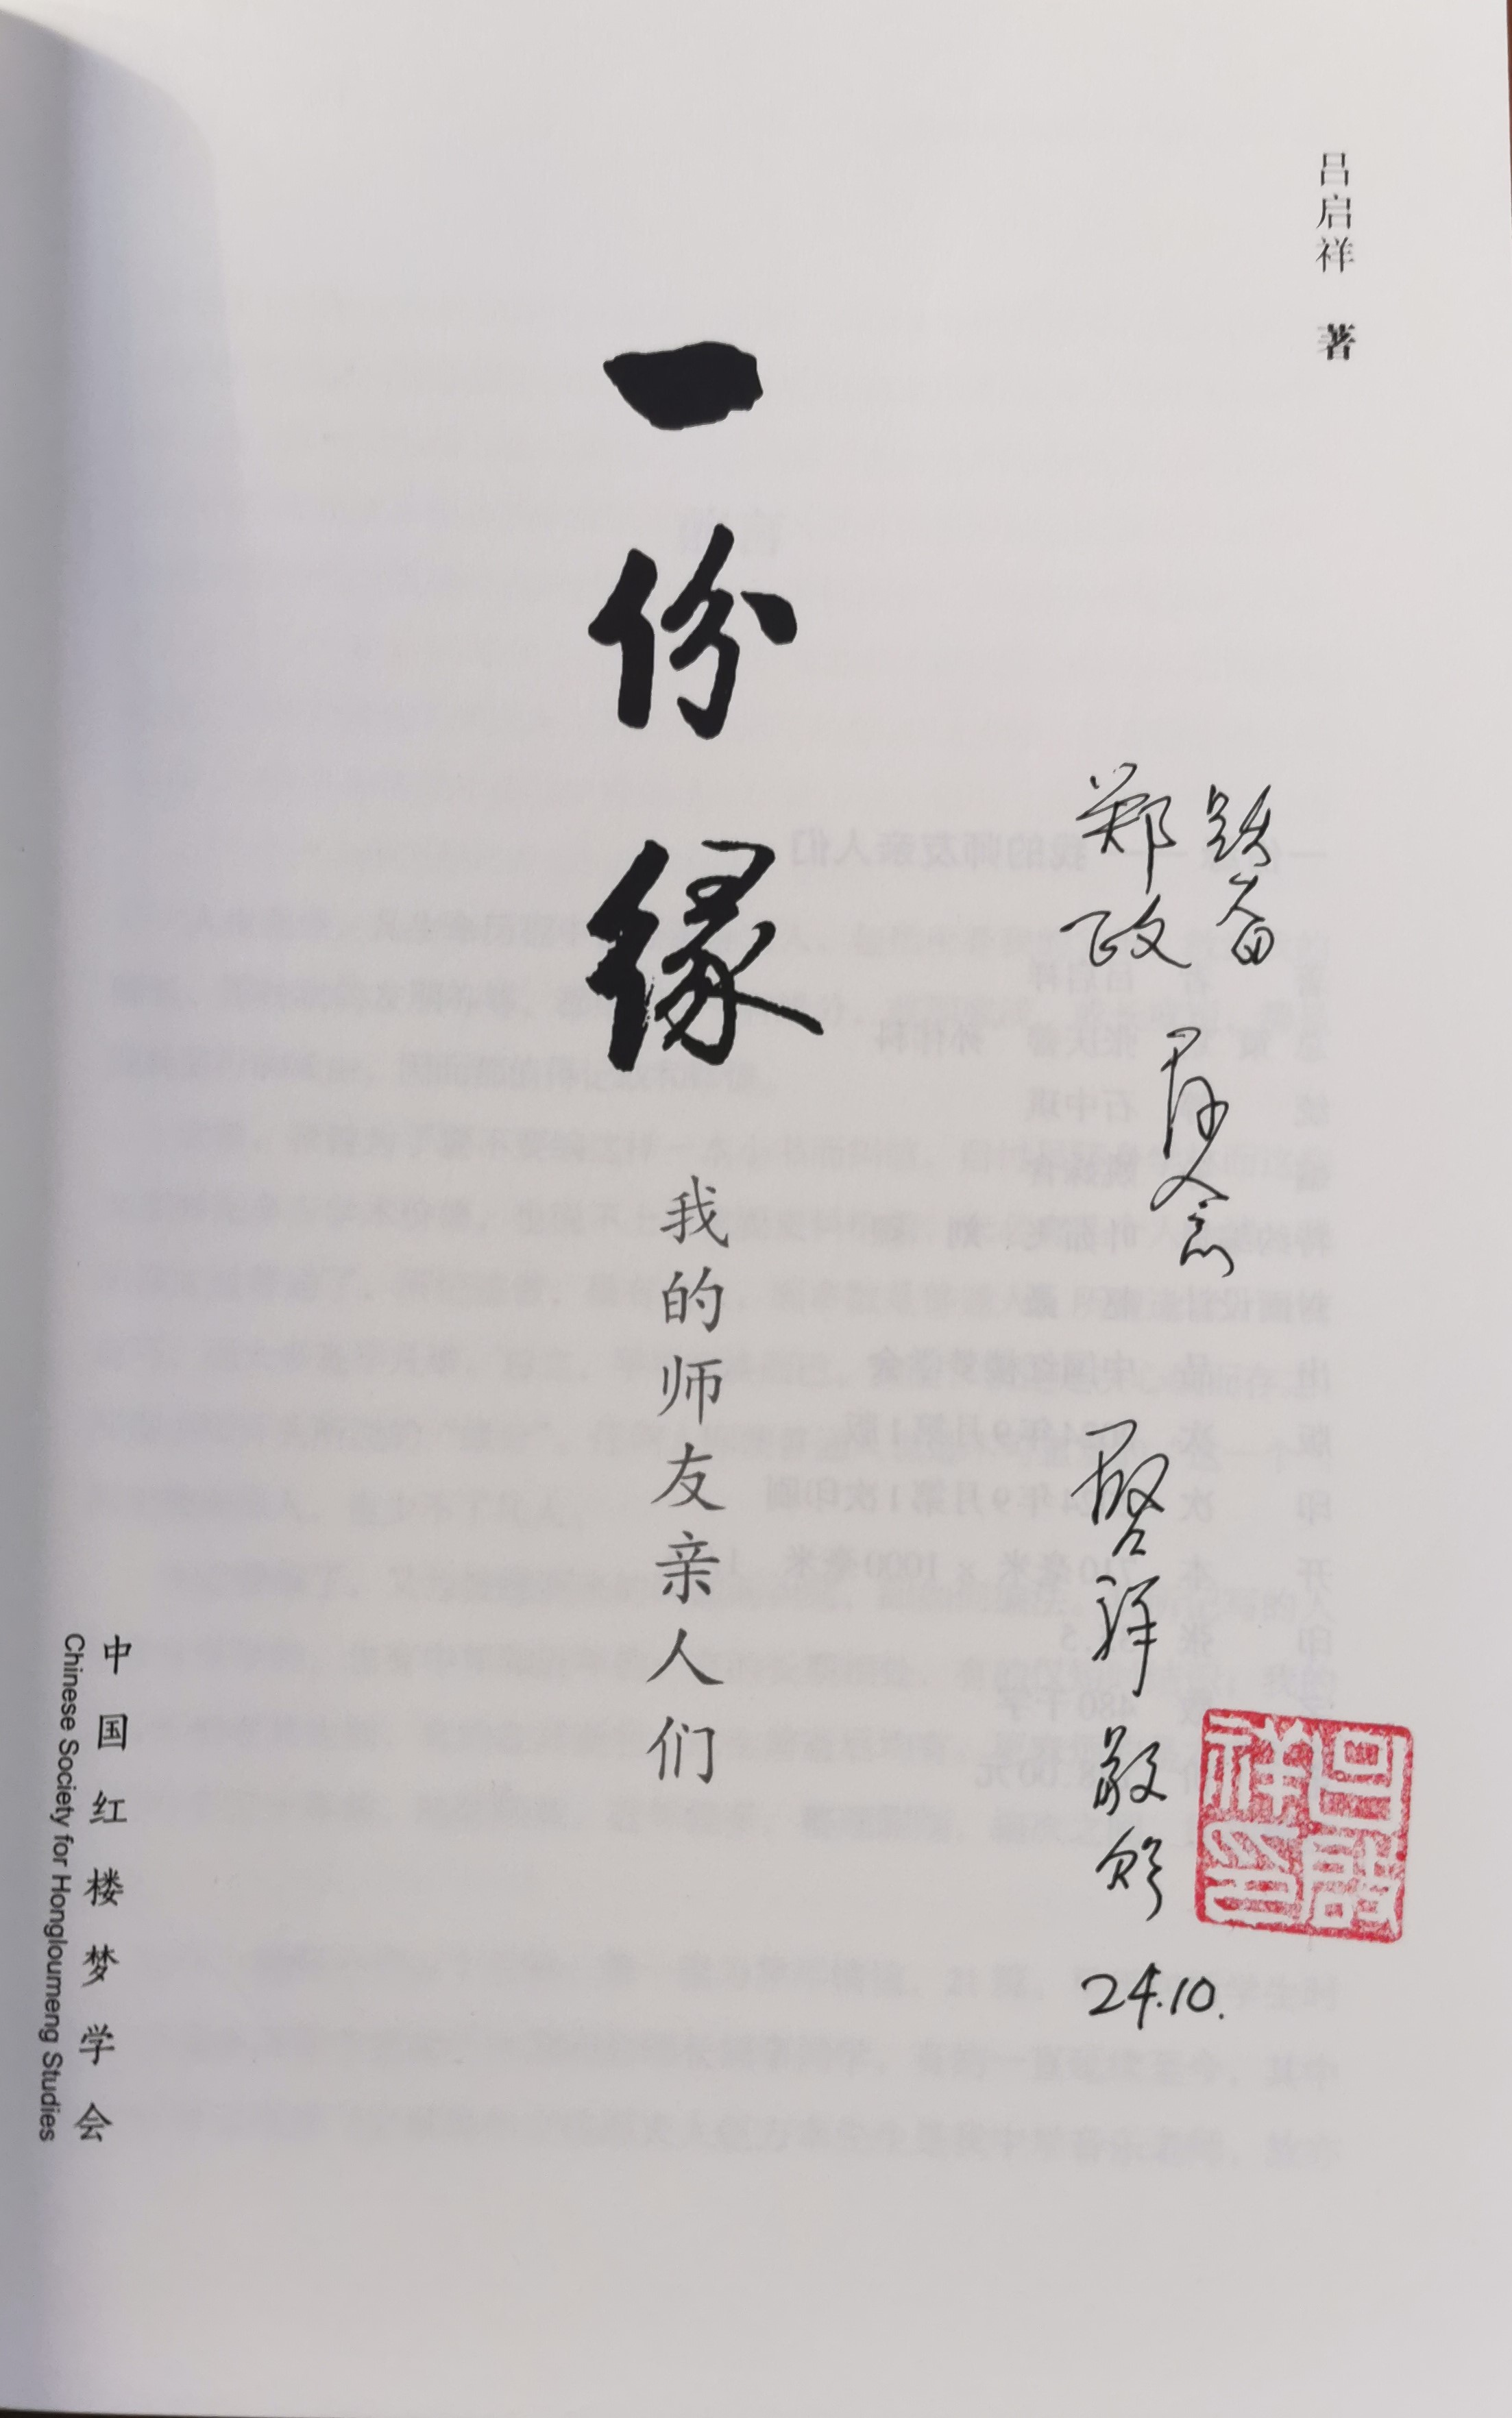 吕启祥 著
一份缘
我的师友亲人们
郑政
存念
啓祥敬
24.10.
吕啟祥印
中国红楼梦学会
Chinese Society for Hongloumeng Studies